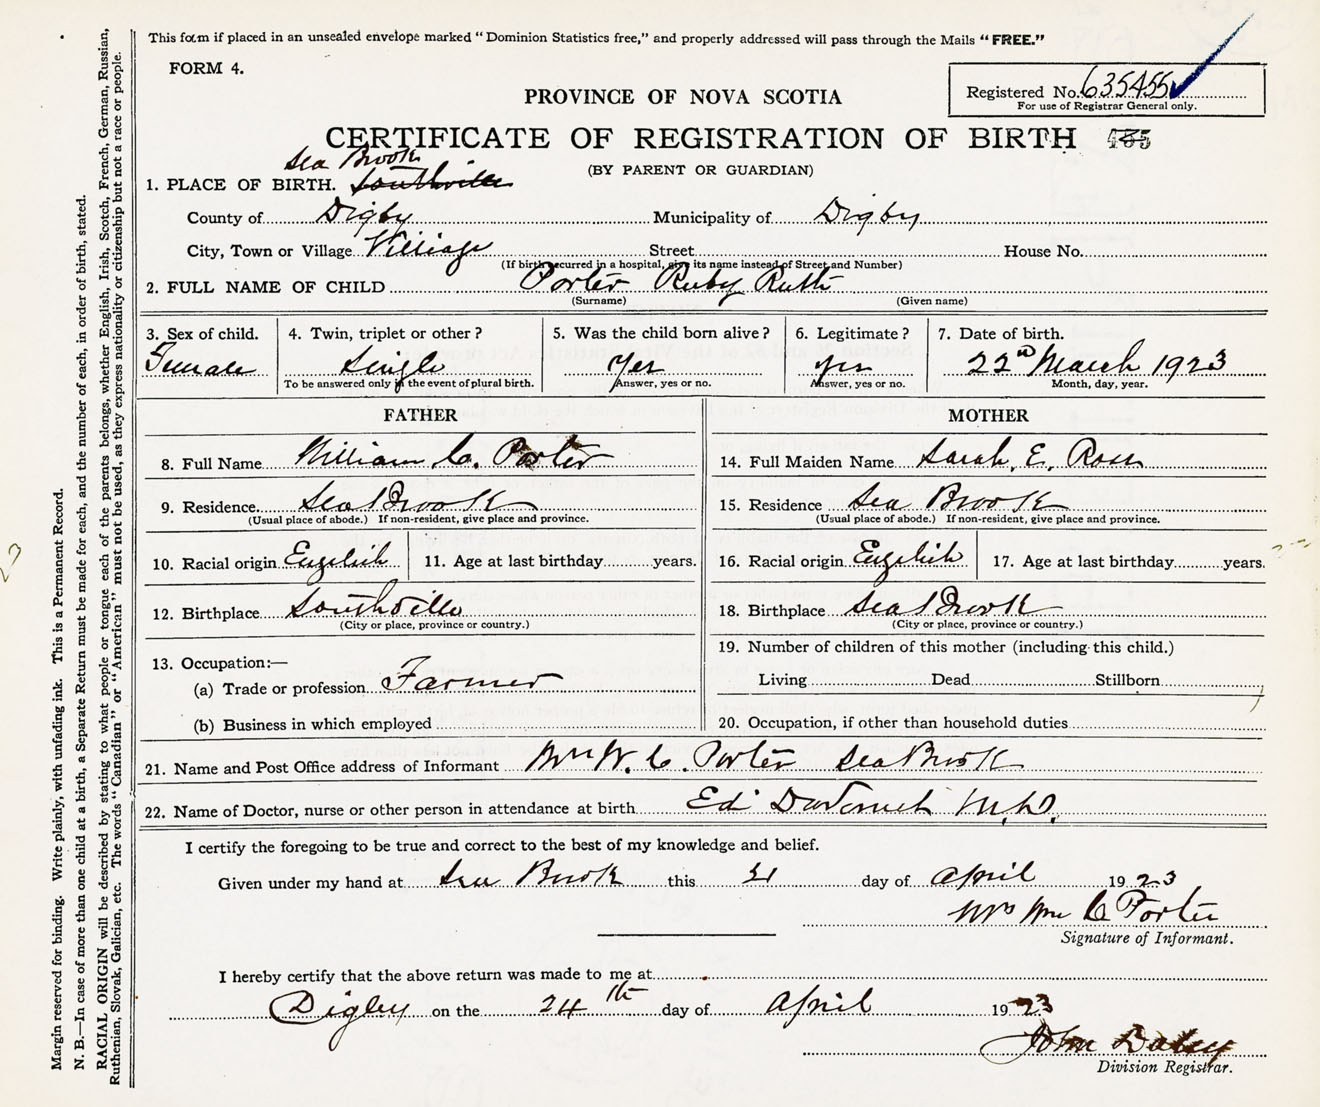 This form if placed in an unsealed envelope marked "Dominion Statistics free," and properly addressed will pass through the Mails "FREE."
FORM 4.
Registered No. 635455
For use of Registrar General only.
PROVINCE OF NOVA SCOTIA
CERTIFICATE OF REGISTRATION OF BIRTH
(BY PARENT OR GUARDIAN)
Sea Brook
1. PLACE OF BIRTH. Southville
County of Digby Municipality of Digby
City, Town or Village Village Street House No.
(If birth occurred in a hospital, give its name instead of Street and Number)
2. FULL NAME OF CHILD Porter Ruby Ruth
(Surname) (Given name)
3. Sex of child. 4. Twin, triplet or other? 5. Was the child born alive? 6. Legitimate? 7. Date of birth.
Female Single Yes yes 22nd March 1923
To be answered only in the event of plural birth. Answer, yes or no. Answer, yes or no. Month, day, year.
FATHER
8. Full Name William C. Porter
9. Residence. Sea Brook
(Usual place of abode.) If non-resident, give place and province.
10. Racial origin English 11. Age at last birthday years.
12. Birthplace Southville
(City or place, province or country.)
13. Occupation:—
(a) Trade or profession Farmer
(b) Business in which employed
MOTHER
14. Full Maiden Name Sarah, E. Ross
15. Residence Sea Brook
(Usual place of abode.) If non-resident, give place and province.
16. Racial origin English 17. Age at last birthday years.
18. Birthplace Sea Brook
(City or place, province or country.)
19. Number of children of this mother (including this child.)
Living Dead Stillborn
20. Occupation, if other than household duties
21. Name and Post Office address of Informant Mrs W. C. Porter Sea Brook
22. Name of Doctor, nurse or other person in attendance at birth Ed M.D.
I certify the foregoing to be true and correct to the best of my knowledge and belief.
Given under my hand at Sea Brook this 21 day of April 1923
Mrs Wm C Porter
Signature of Informant.
I hereby certify that the above return was made to me at
Digby on the 24th day of April 1923
John Daley
Division Registrar.
Margin reserved for binding. Write plainly, with unfading ink. This is a Permanent Record.
N. B.—In case of more than one child at a birth, a Separate Return must be made for each, and the number of each, in order of birth, stated.
RACIAL ORIGIN will be described by stating to what people or tongue each of the parents belongs, whether English, Irish, Scotch, French, German, Russian,
Ruthenian, Slovak, Galician, etc. The words "Canadian" or "American" must not be used, as they express nationality or citizenship but not a race or people.
23